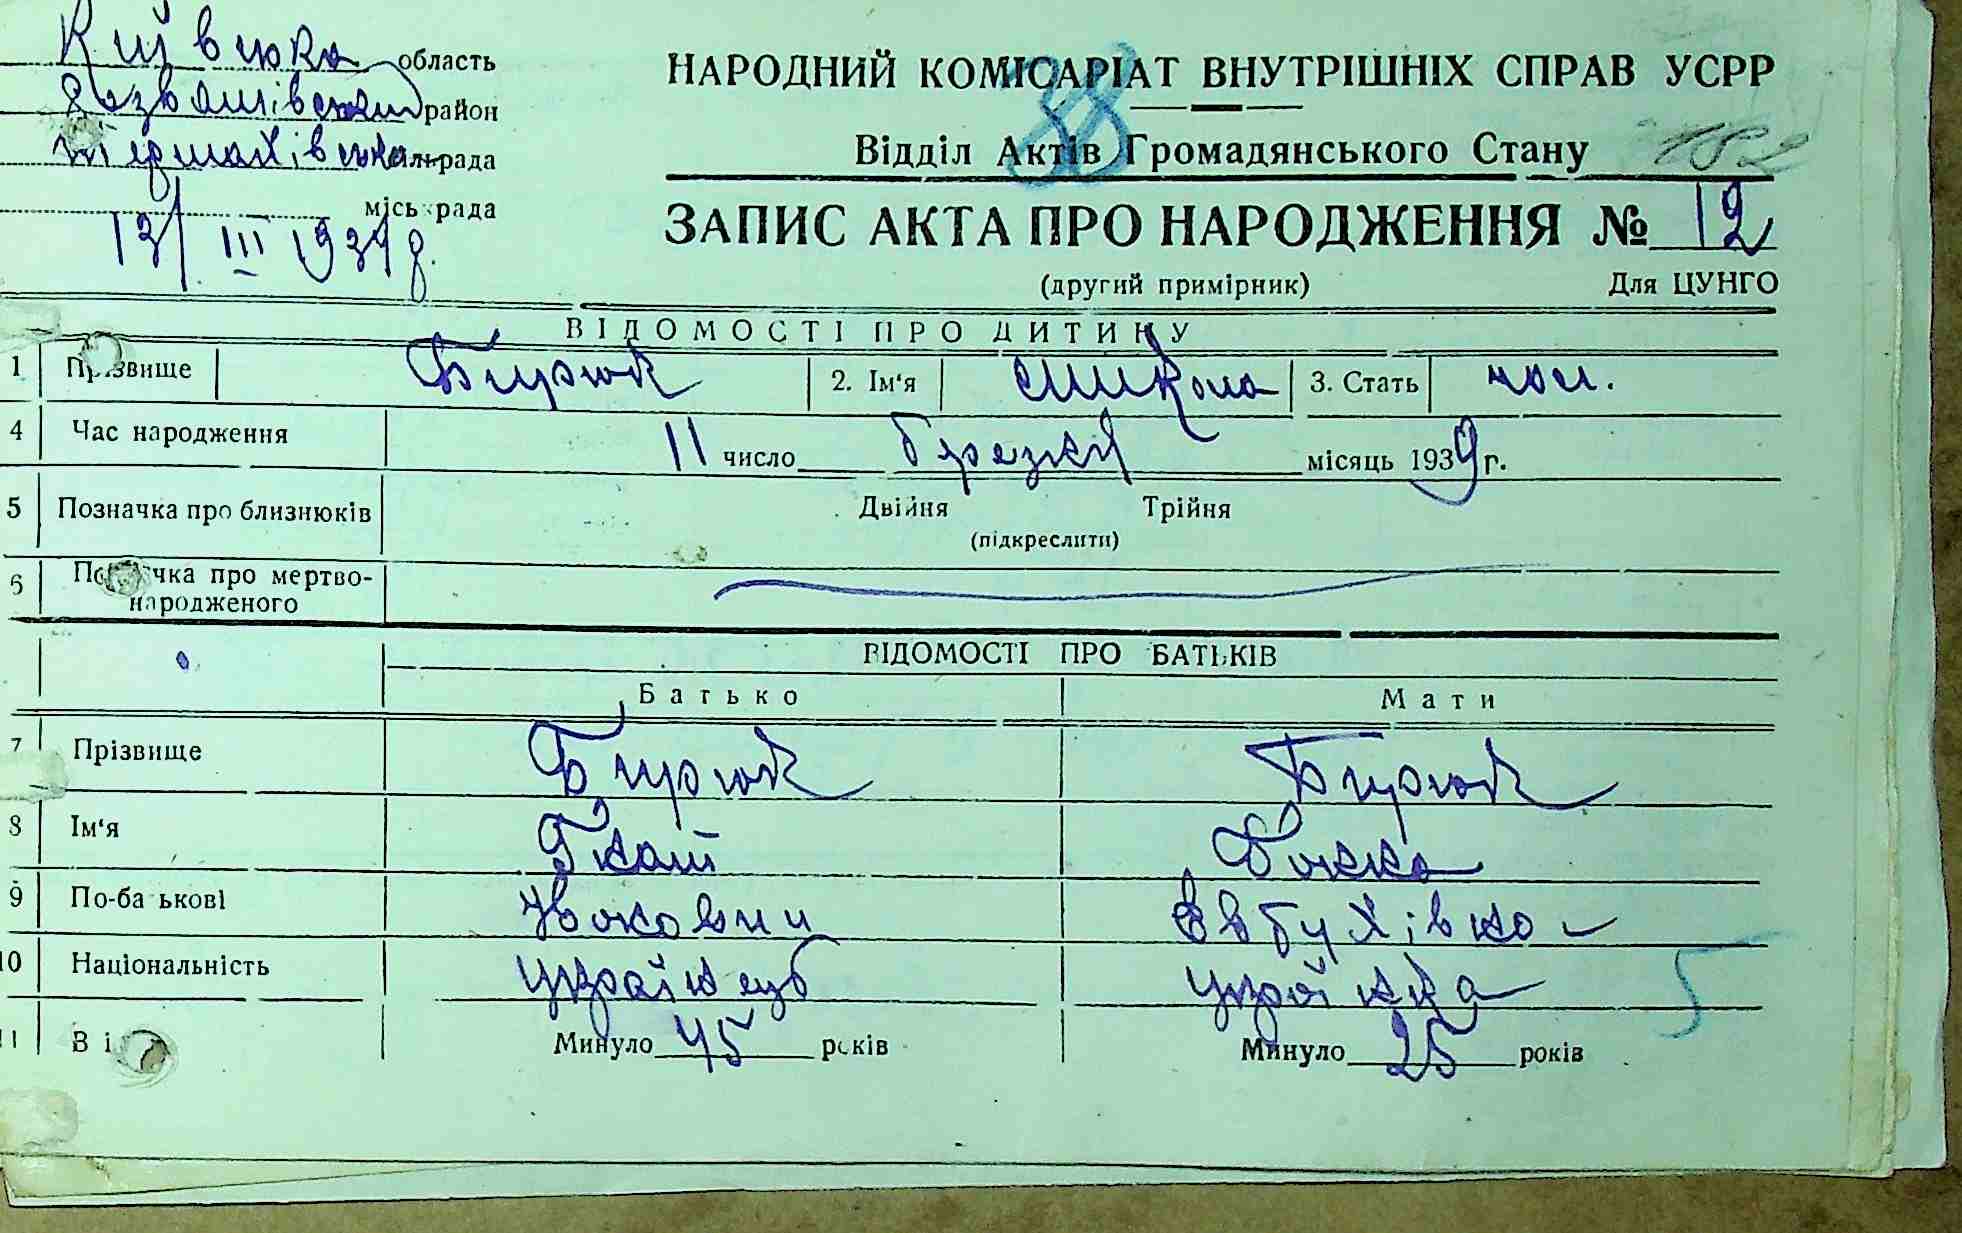 Київська область
Розважівський район
Термахівська сільрада
міськрада
13/III 1939 р.
НАРОДНИЙ КОМІСАРІАТ ВНУТРІШНІХ СПРАВ УСРР
88
Відділ Актів Громадянського Стану 182
ЗАПИС АКТА ПРО НАРОДЖЕННЯ № 12
(другий примірник) Для ЦУНГО
ВІДОМОСТІ ПРО ДИТИНУ
1 Прізвище Бирюк 2. Ім'я Микола 3. Стать чол.
4 Час народження 11 число березня місяць 1939 г.
5 Позначка про близнюків Двійня Трійня
(підкреслити)
6 Позначка про мертво-
народженого
ВІДОМОСТІ ПРО БАТЬКІВ
Батько Мати
7 Прізвище Бирюк Бирюк
8 Ім'я Гнат
9 По-батькові Євтухівна
10 Національність українець українка 5
11 Вік Минуло 45 років Минуло 25 років